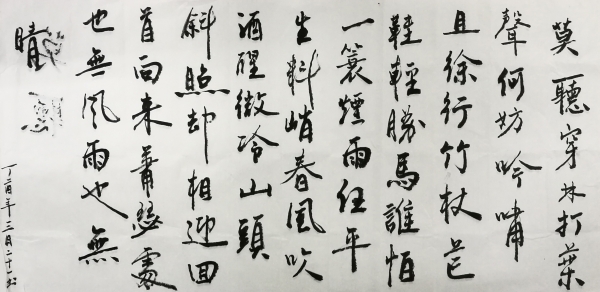 莫聽穿林打葉
聲何妨吟嘯
且徐行竹杖芒
鞋輕勝馬誰怕
一蓑煙雨任平
生料峭春風吹
酒醒微冷山頭
斜照却相迎回
首向来蕭瑟處
也無風雨也無
晴
丁酉年三月二十一书